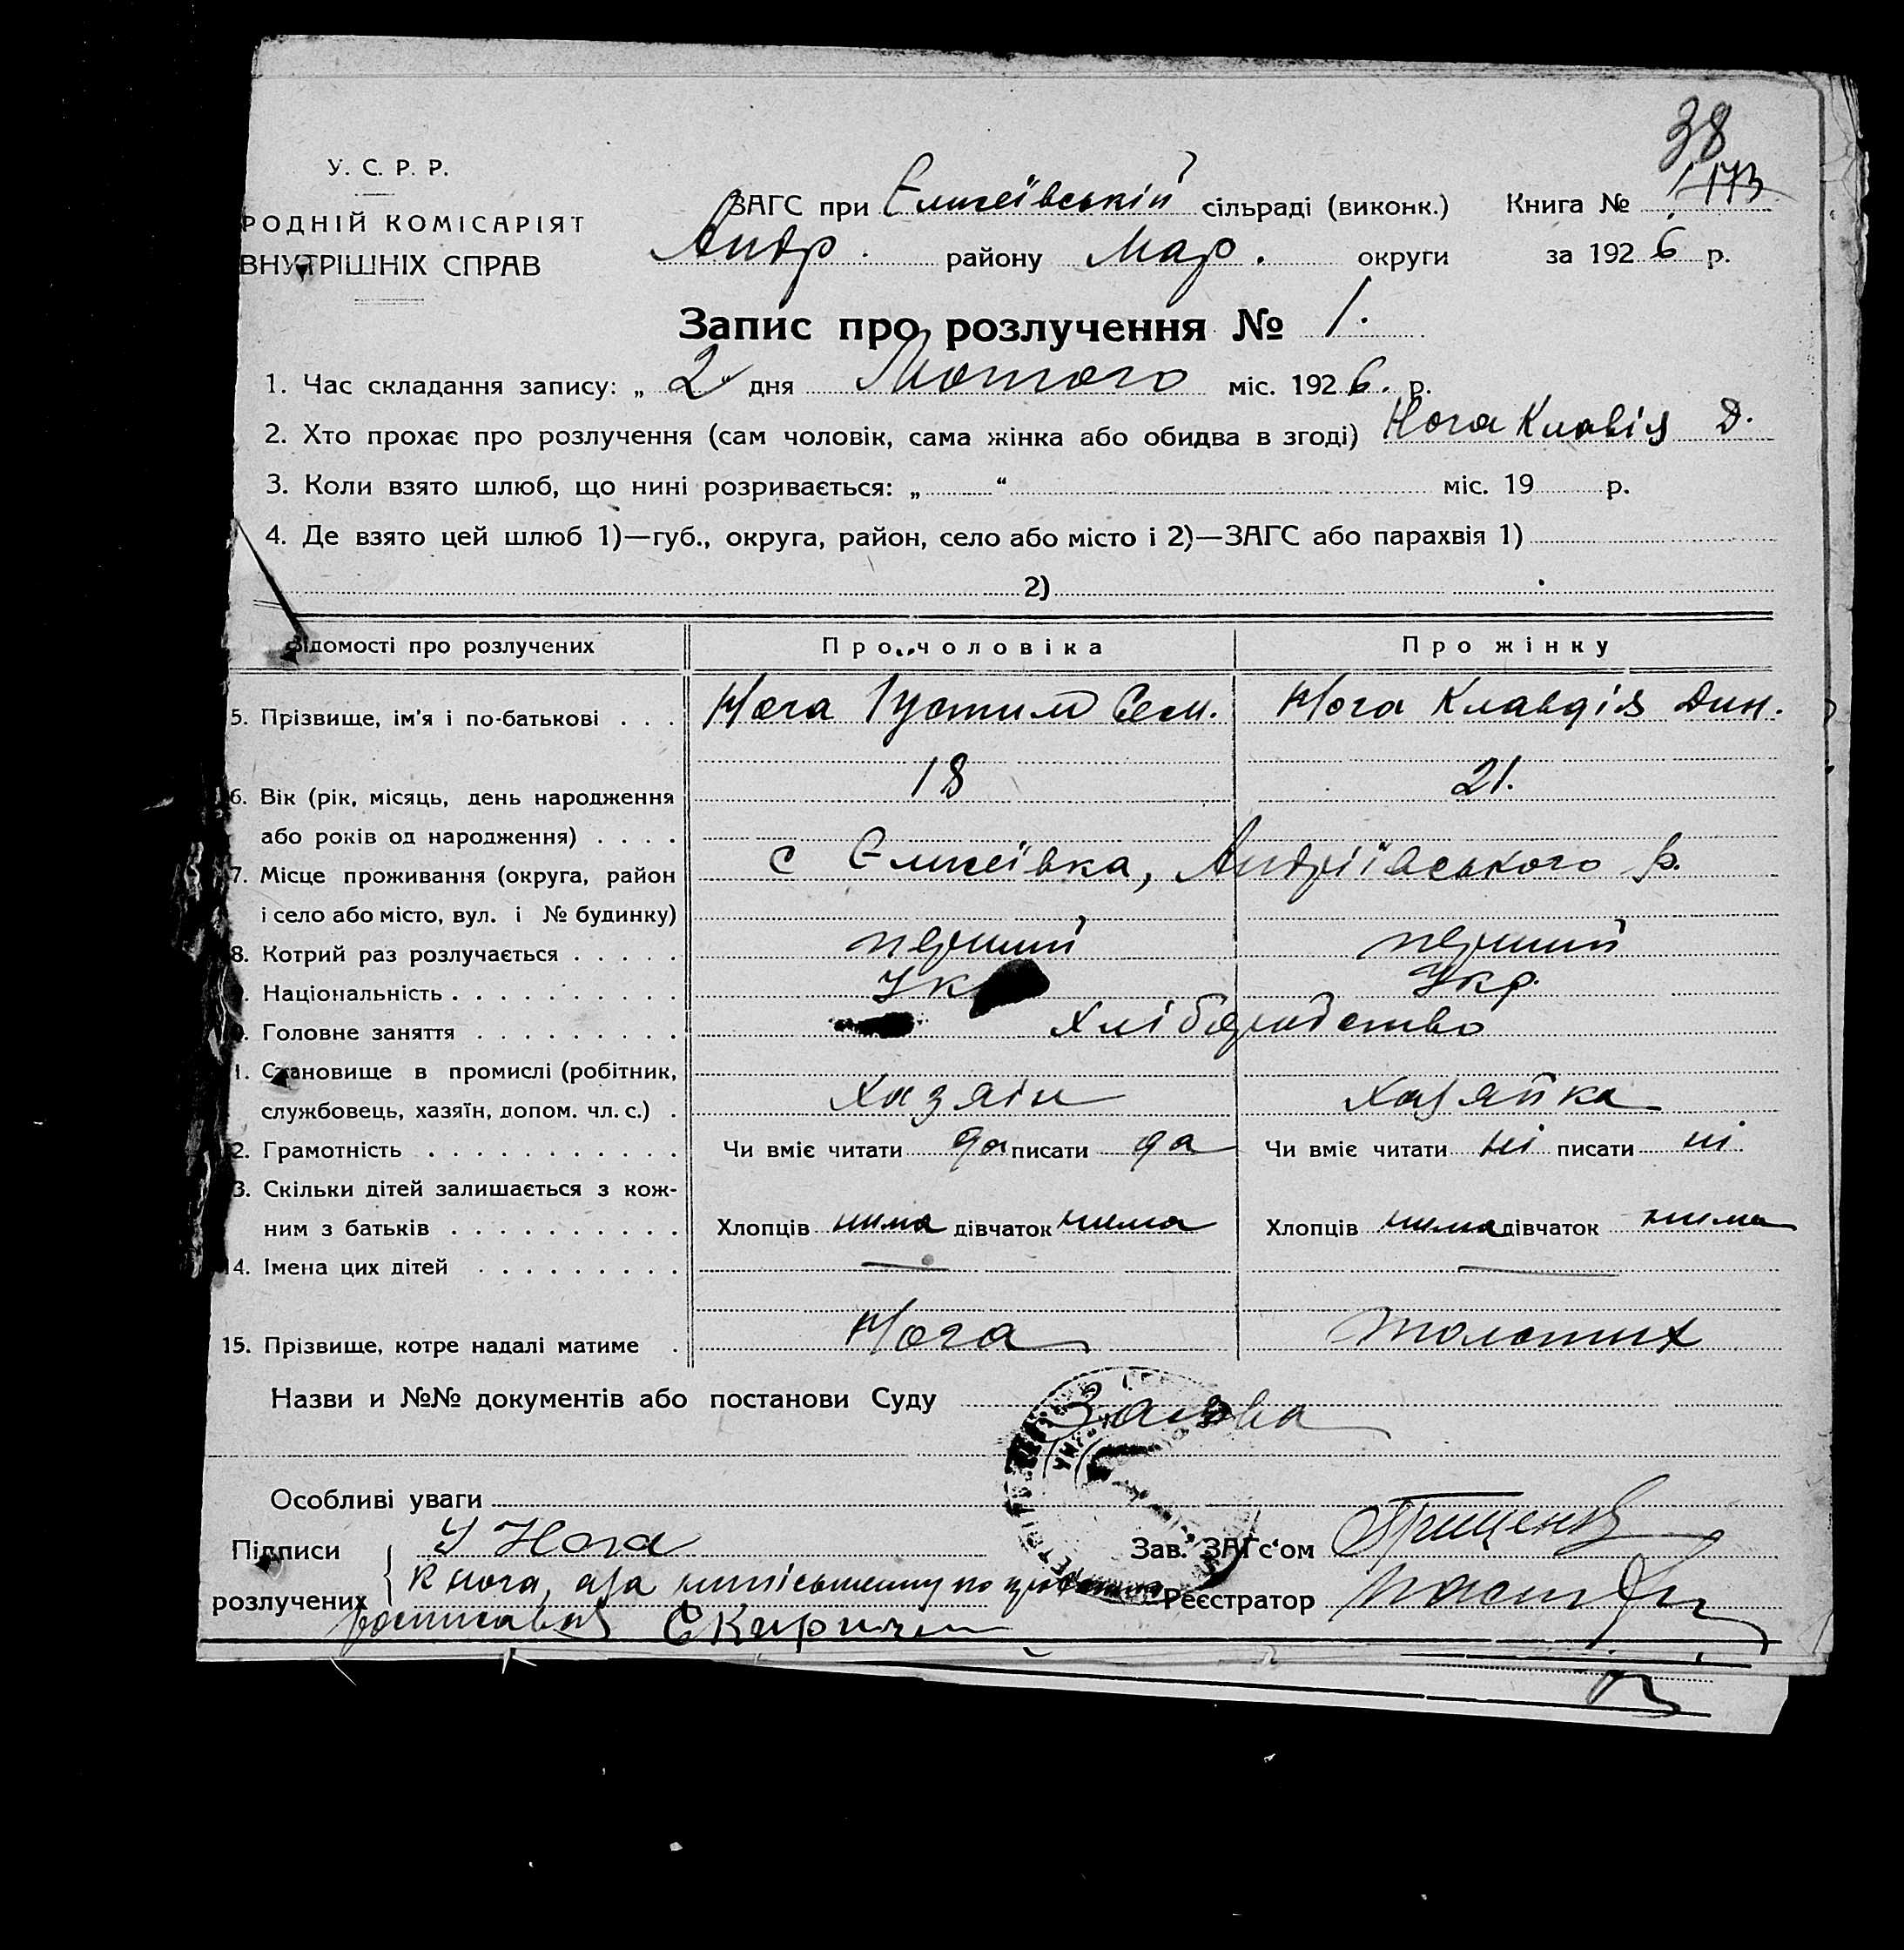 38
У. С. Р. Р.
РОДНІЙ КОМІСАРІЯТ
ВНУТРІШНІХ СПРАВ
ЗАГС при Єлисеївській сільраді (виконк.) Книга № 1 173
Андр. району Мар. округи за 1926 р.
Запис про розлучення № 1.
1. Час складання запису: „2“ дня Лютого міс. 1926. р.
2. Хто прохає про розлучення (сам чоловік, сама жінка або обидва в згоді) Нога Клавія Д.
3. Коли взято шлюб, що нині розривається: „ “ міс. 19 р.
4. Де взято цей шлюб 1)—губ., округа, район, село або місто і 2)—ЗАГС або парахвія 1)
2)
Відомості про розлучених Про чоловіка Про жінку
5. Прізвище, ім'я і по-батькові . . . Нога Устим Сем. Нога Клавдія Дин.
6. Вік (рік, місяць, день народження 18 21.
або років од народження) . . . .
7. Місце проживання (округа, район с Єлисеївка, Андріївського р.
і село або місто, вул. і № будинку)
8. Котрий раз розлучається . . . . . перший перший
. Національність . . . . . . . . . . Ук Укр.
. Головне заняття . . . . . . . . . Хліборобство
1. Становище в промислі (робітник,
службовець, хазяїн, допом. чл. с.) . Хазяін Хазяйка
2. Грамотність . . . . . . . . . . . Чи вміє читати да писати да Чи вміє читати ні писати ні
3. Скільки дітей залишається з кож-
ним з батьків . . . . . . . . . . Хлопців нима дівчаток нима Хлопців нима дівчаток нима
14. Імена цих дітей . . . . . . . . . — —
15. Прізвище, котре надалі матиме . Нога Толстих
Назви и №№ документів або постанови Суду Заява
Особливі уваги
Підписи У Нога Зав. ЗАГс'ом Грищенко
розлучених К Нога, а за Реєстратор
росписався